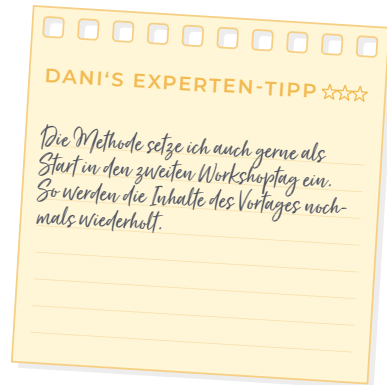 DANI‘S EXPERTEN-TIPP
Die Methode setze ich auch gerne als
Start in den zweiten Workshoptag ein.
So werden die Inhalte des Vortages noch-
mals wiederholt.